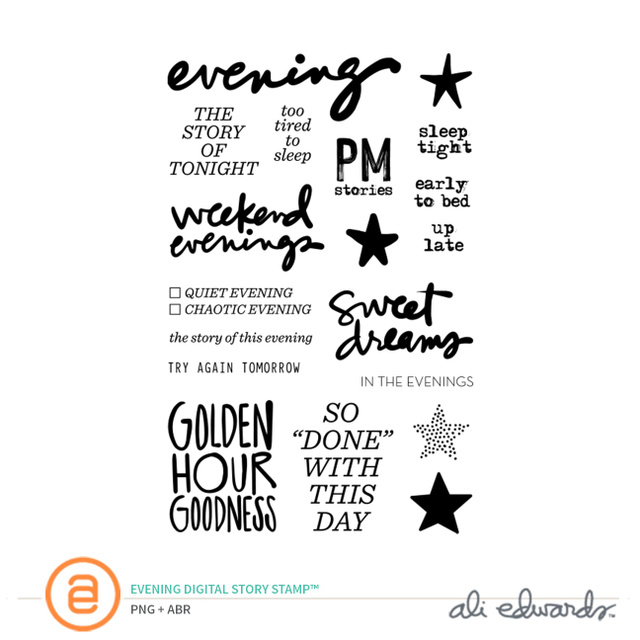 evening
THE
STORY
OF
TONIGHT
too
tired
to
sleep
PM
stories
sleep
tight
early
to bed
up
late
weekend
evenings
QUIET EVENING
CHAOTIC EVENING
the story of this evening
TRY AGAIN TOMORROW
sweet
dreams
IN THE EVENINGS
GOLDEN
HOUR
GOODNESS
SO
“DONE”
WITH
THIS
DAY
a
EVENING DIGITAL STORY STAMP™
PNG + ABR
ali edwards™